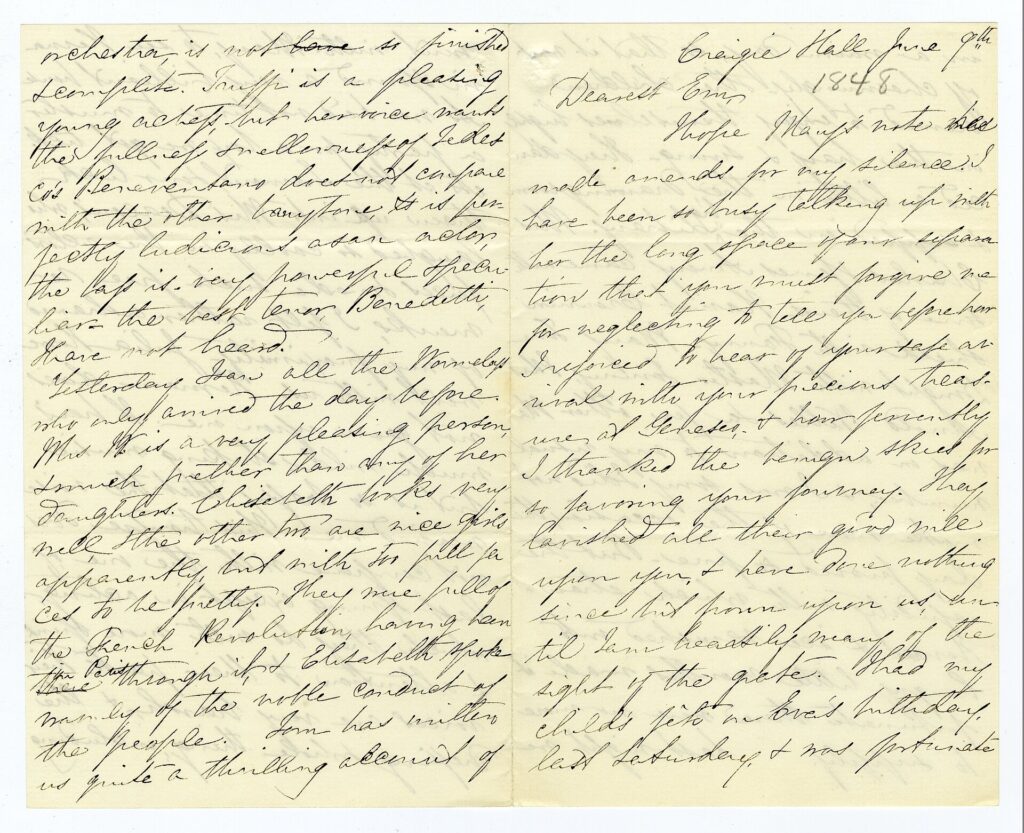 orchestra, is not have so finished
& complete. Truffi is a pleasing
young actress, but her voice wants
the fullness & mellowness of Tedes
co's Beneventano does not compare
with the other barytone, & is per-
fectly ludicrous as an actor,
the bass is very powerful & pecu-
liar the best tenor, Benedetti,
I have not heard.
Yesterday I saw all the Wormeleys
who only arrived the day before.
Mrs W is a very pleasing person,
& much prettier than any of her
daughters. Elisabeth looks very
well, & the other two are nice girls
apparently, but with too full fa
ces to be pretty. They were full of
the French Revolution, having been
in Paris
there through it, & Elisabeth spoke
warmly of the noble conduct of
the people. Tom has written
us quite a thrilling account of
Craigie Hall June 9th
1848
Dearest Em,
I hope Mary's note has
made amends for my silence. I
have been so busy talking up with
her the long space of our separa
tion that you must forgive me
for neglecting to tell you before how
I rejoiced to hear of your safe ar
rival with your precious treas-
ure, at Geneseo, & how fervently
I thanked the benign skies for
so favoring your journey. They
lavished all their good will
upon you, & have done nothing
since but frown upon us, un-
til I am heartily weary of the
sight of the grate. I had my
child's fête on Eva's birthday,
last Saturday, & was fortunate